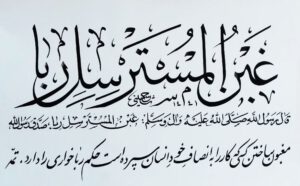 غبن المسترسل ربا
قال رسول الله صلی الله علیه و آله و سلم: غبن المسترسل ربا، صدق رسول الله
مغبون ساختن کسی که کار را به انصاف خود انسان سپرده است حکم رباخواری را دارد،